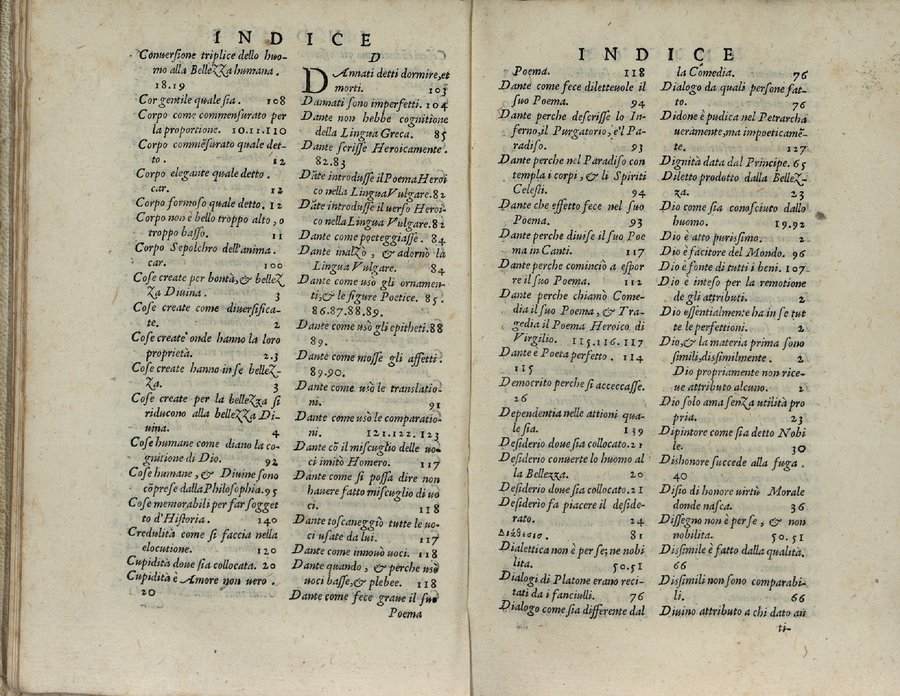 INDICE
Conuersione triplice dello huo-
mo alla Bellezza humana.
18.19
Cor gentile quale sia. 108
Corpo come commensurato per
la proportione. 10.11.110
Corpo commẽsurato quale det-
to. 12
Corpo elegante quale detto.
car. 12
Corpo formoso quale detto. 12
Corpo non è bello troppo alto, o
troppo basso. 11
Corpo Sepolchro dell'anima.
car. 100
Cose create per bontà, & bellez
za Diuina. 3
Cose create come diuersifica-
te. 2
Cose create onde hanno la loro
proprietà. 2.3
Cose create hanno in se bellez-
za. 3
Cose create per la bellezza si
riducono alla bellezza Di-
uina. 4
Cose humane come diano la co-
gnitione di Dio. 92
Cose humane, & Diuine sono
cõprese dalla Philosophia. 95
Cose memorabili per far sogget
to d'Historia. 140
Credulità come si faccia nella
elocutione. 120
Cupidità doue sia collocata. 20
Cupidità è Amore non uero.
20
D
DAnnati detti dormire, et
morti. 103
Dannati sono imperfetti. 104
Dante non hebbe cognitione
della Lingua Greca. 85
Dante scrisse Heroicamente.
82.83
Dãte introdusse il Poema Heroi
co nella Lingua Vulgare. 82
Dãte introdusse il uerso Heroi-
co nella Lingua Vulgare. 82
Dante come poeteggiasse. 84
Dante inalzo, & adornò la
Lingua Vulgare. 84
Dante come uso gli ornamen-
ti, & le figure Poetice. 85.
86.87.88.89.
Dante come usò gli epitheti. 88
89.
Dante come mosse gli affetti.
89.90.
Dante come usò le translatio-
ni. 91
Dante come usò le comparatio-
ni. 121.122.123
Dante cõ il miscuglio delle uo-
ci imitò Homero. 117
Dante come si possa dire non
hauere fatto miscuglio di uo
ci. 118
Dante toscaneggiò tutte le uo-
ci usate da lui. 117
Dante come innouò uoci. 118
Dante quando, & perche usò
uoci basse, & plebee. 118
Dante come fece graue il suo
Poema
INDICE
Poema. 118
Dante come fece diletteuole il
suo Poema. 94
Dante perche descrisse lo In-
ferno, il Purgatorio, e'l Pa-
radiso. 93
Dante perche nel Paradiso con
templa i corpi, & li Spiriti
Celesti. 94
Dante che effetto fece nel suo
Poema. 93
Dante perche diuise il suo Poe
ma in Canti. 117
Dante perche cominciò a espor
re il suo Poema. 112
Dante perche chiamò Come-
dia il suo Poema, & Tra-
gedia il Poema Heroico di
Virgilio. 115.116.117
Dante è Poeta perfetto. 114
115
Democrito perche si acceccasse.
26
Dependentia nelle attioni qua-
le sia. 139
Desiderio doue sia collocato. 21
Desiderio conuerte lo huomo al
la Bellezza. 20
Desiderio doue sia collocato. 21
Desiderio fa piacere il deside-
rato. 24
81
Dialettica non è per se; ne nobi
lita. 50.51
Dialogi di Platone erano reci-
tati da i fanciulli. 76
Dialogo come sia differente dal
la Comedia. 76
Dialogo da quali persone fat-
to. 76
Didone è pudica nel Petrarcha
ueramente, ma impoeticamẽ-
te. 127
Dignità data dal Principe. 65
Diletto prodotto dalla Bellez-
za. 23
Dio come sia conosciuto dallo
huomo. 19.92
Dio è atto purissimo. 2
Dio è facitore del Mondo. 96
Dio è fonte di tutti i beni. 107
Dio è inteso per la remotione
de gli attributi. 2
Dio essentialmente ha in se tut
te le perfettioni. 2
Dio, & la materia prima sono
simili, dissimilmente. 2
Dio propriamente non rice-
ue attributo alcuno. 2
Dio solo ama senza utilità pro
pria. 23
Dipintore come sia detto Nobi
le. 30
Dishonore succede alla fuga.
40
Disio di honore uirtù Morale
donde nasca. 36
Dissegno non è per se, & non
nobilita. 50.51
Dissimile è fatto dalla qualità.
66
Dissimili non sono comparabi-
li. 66
Diuino attributo a chi dato an
ti-